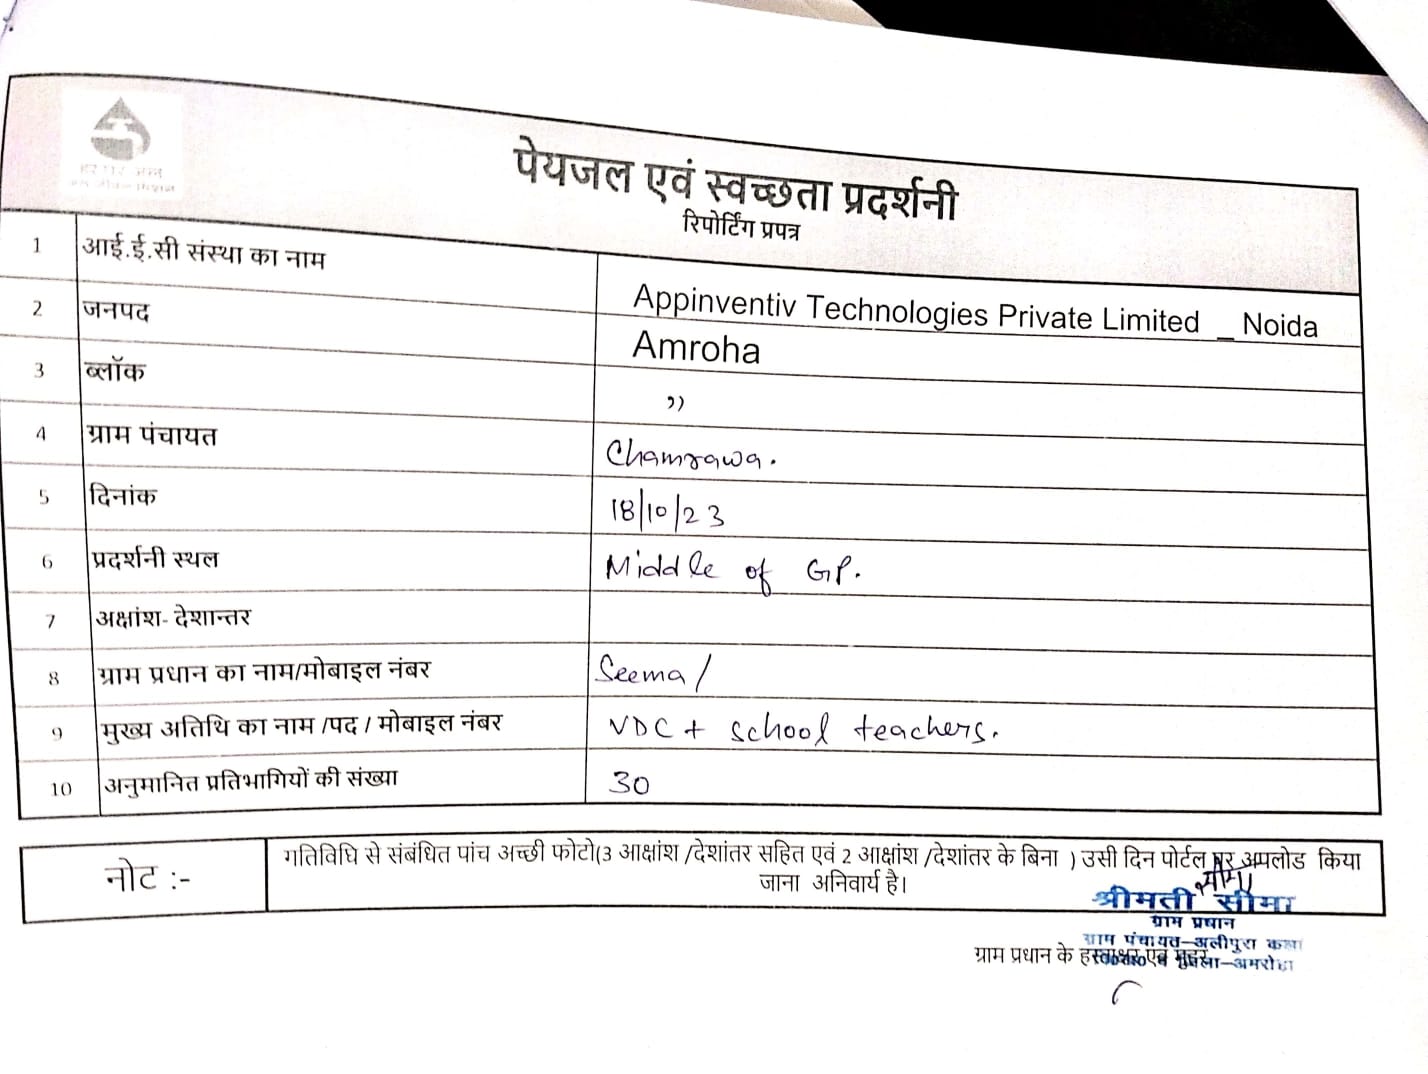 हर घर जल
पेयजल एवं स्वच्छता प्रदर्शनी
रिपोर्टिंग प्रपत्र
1 आई.ई.सी संस्था का नाम Appinventiv Technologies Private Limited _ Noida
2 जनपद Amroha
3 ब्लॉक ”
4 ग्राम पंचायत Chamrawa.
5 दिनांक 18/10/23
6 प्रदर्शनी स्थल Middle of GP.
7 अक्षांश- देशान्तर
8 ग्राम प्रधान का नाम/मोबाइल नंबर Seema/
9 मुख्य अतिथि का नाम /पद / मोबाइल नंबर VDC + school teachers.
10 अनुमानित प्रतिभागियों की संख्या 30
नोट :- गतिविधि से संबंधित पांच अच्छी फोटो(3 आक्षांश /देशांतर सहित एवं 2 आक्षांश /देशांतर के बिना ) उसी दिन पोर्टल पर अपलोड किया
जाना अनिवार्य है।
सीमा
श्रीमती सीमा
ग्राम प्रधान
ग्राम पंचायत-अलीपुरा कला
ग्राम प्रधान के हस्ताक्षर एवं मुहर
जिला-अमरोहा